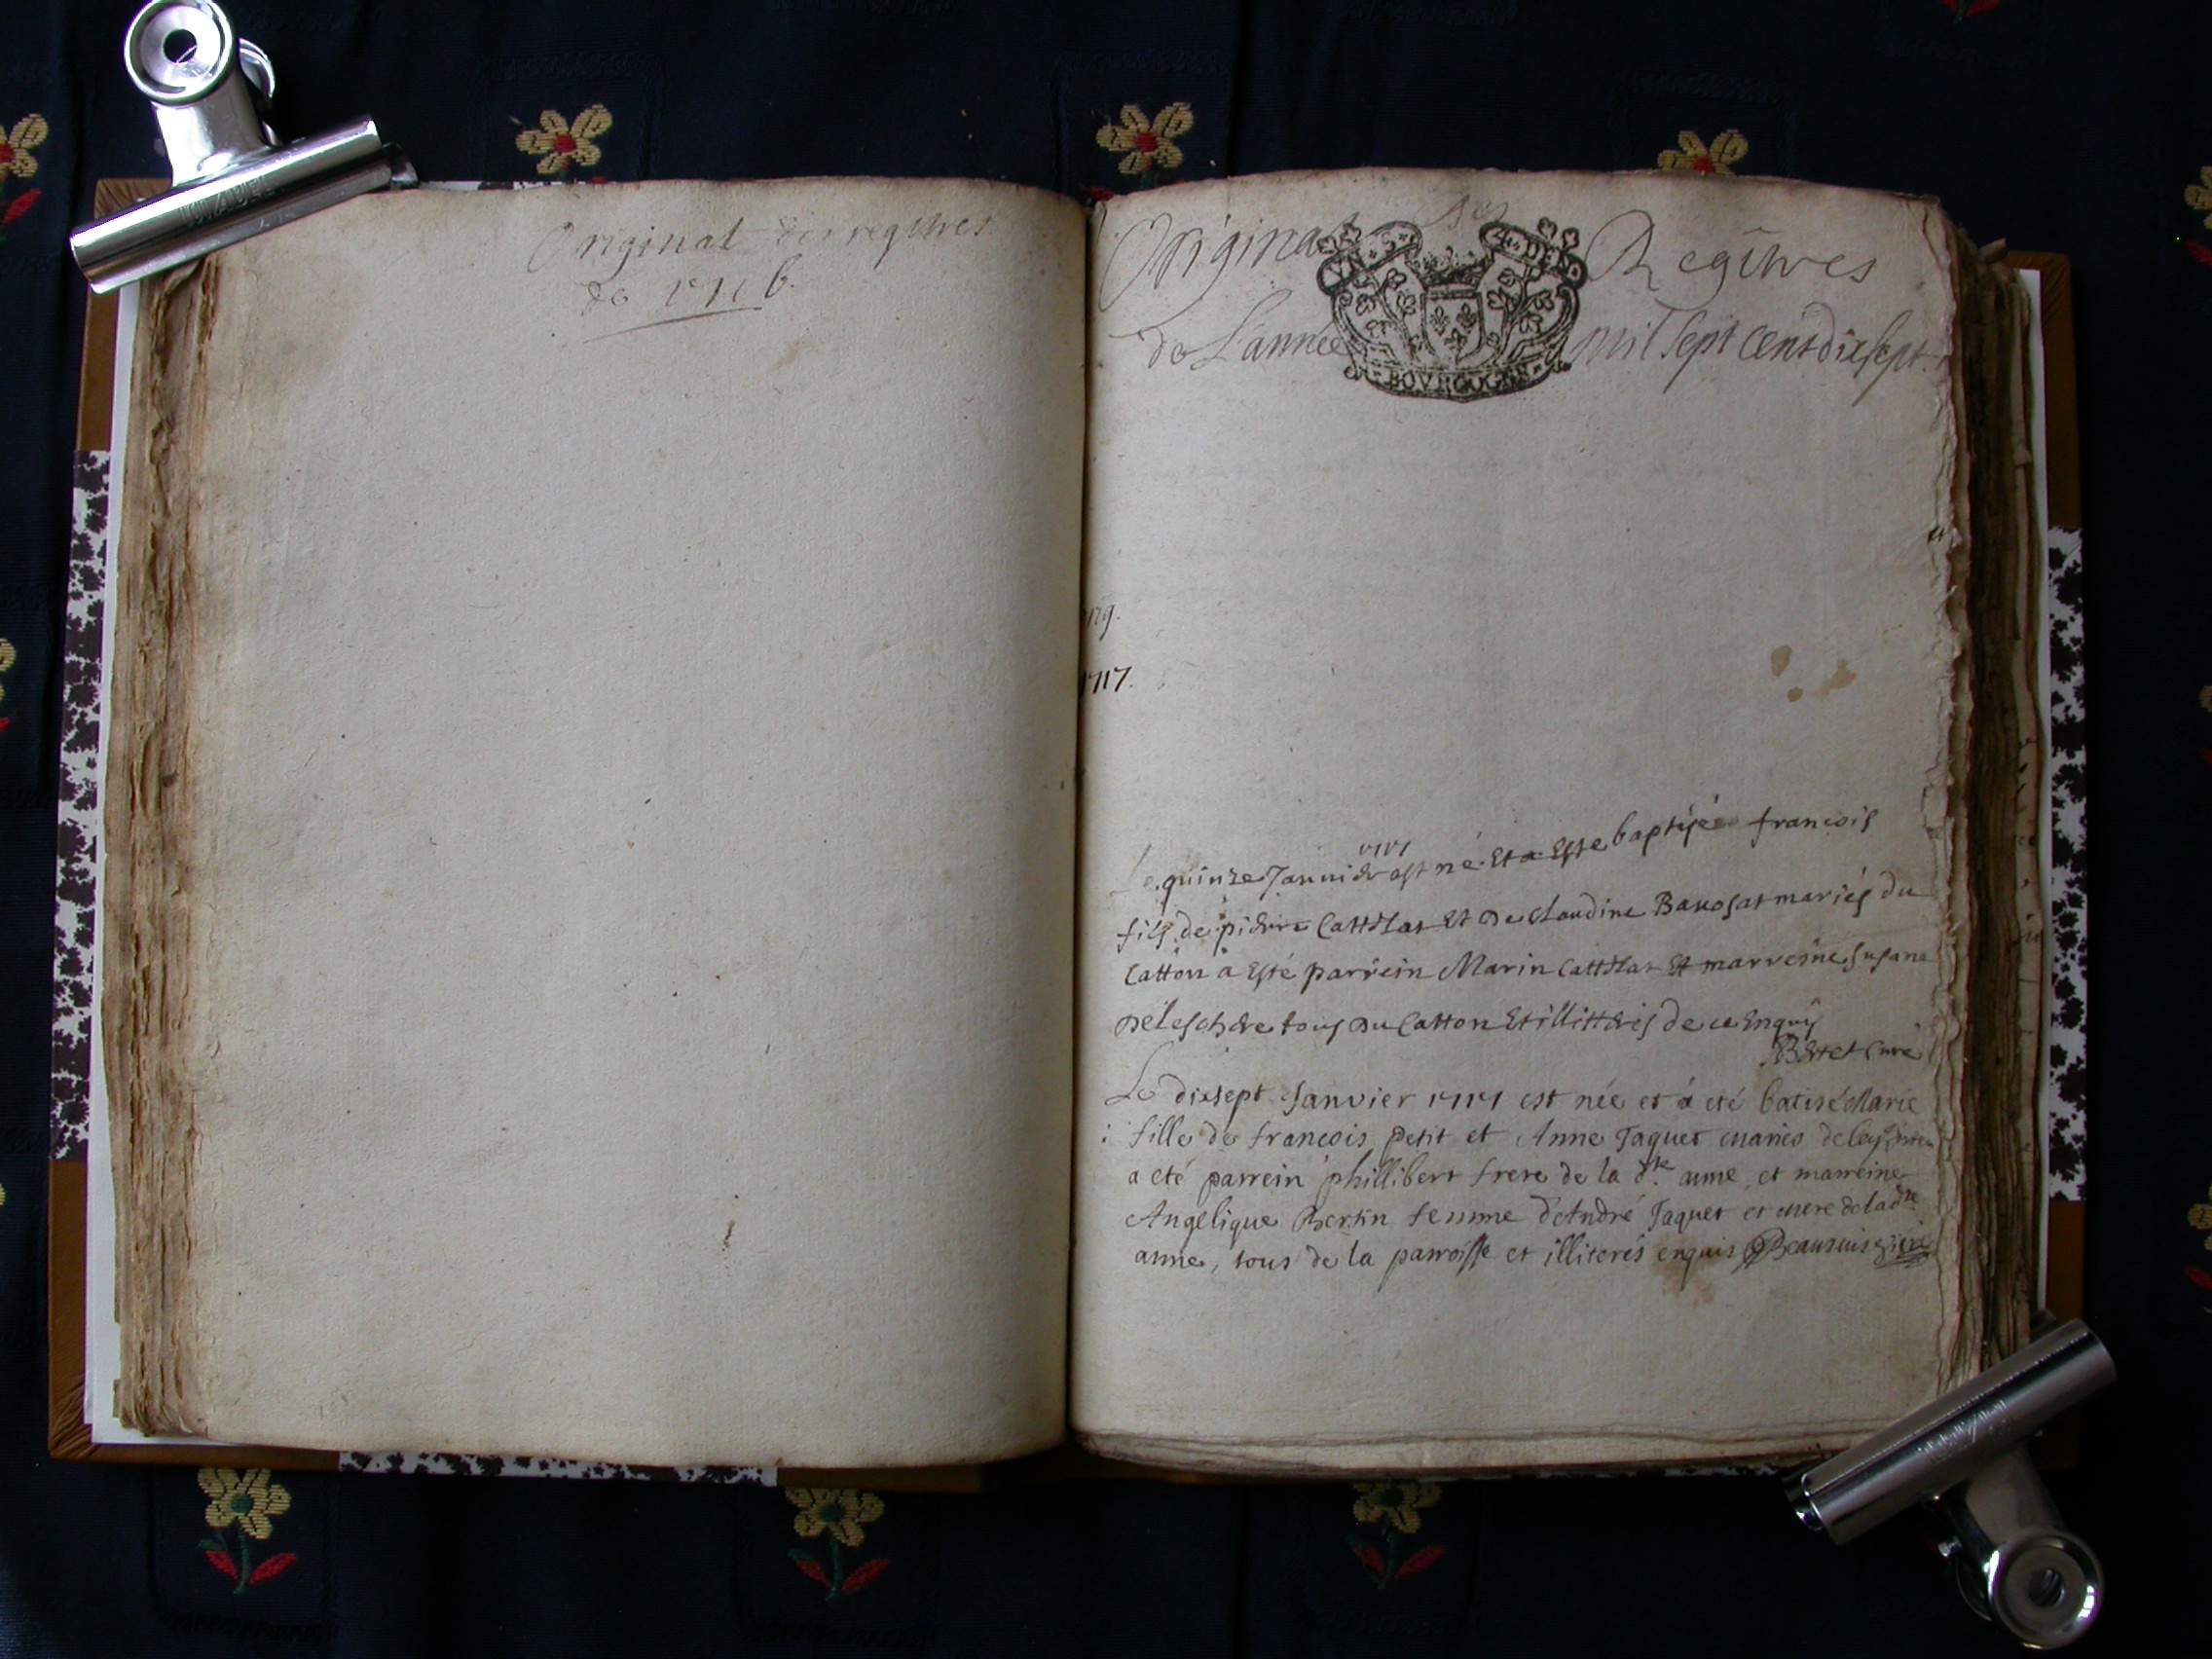 Original des regitres
de 1716.
Original des Regitres
de L'année mil sept cent disept.
BOVRGOGNE
rig.
1717.
1717
Le quinze Janvier est né Et a Esté baptisé francois
fils de pierre Cattilar Et De claudine mariés du
Catton a Esté parrein Marin Cattilar Et marreine Susane
tous Du Catton Et illitterés de ce Enquis
Curé
Le disept Janvier 1717 est née et a eté batisé Marie
fille de francois petit et Anne Jaquet mariés
a eté parrein phillibert frere de la dte anne, et marreine
Angelique Bertin femme d'André Jaquet et mere de la dte
anne, tous de la parroisse et illiterés enquis